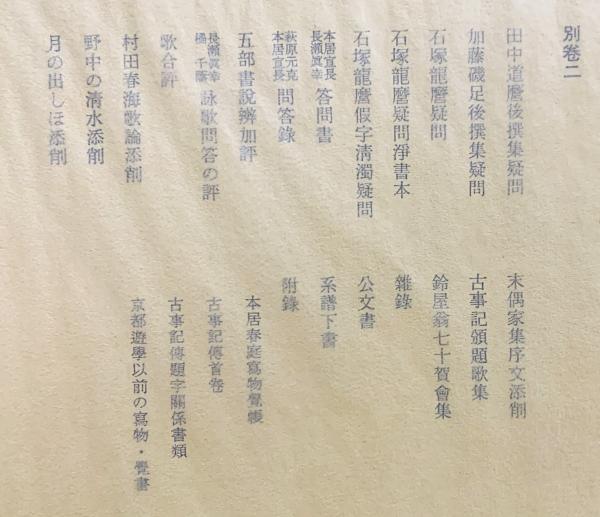 別卷二
田中道麿後撰集疑問
加藤磯足後撰集疑問
石塚龍麿疑問
石塚龍麿疑問淨書本
石塚龍麿假字淸濁疑問
本居宣長
長瀬眞幸 答問書
萩原元克
本居宣長 問答錄
五部書說辨加評
長瀬眞幸
橘 千蔭 詠歌問答の評
歌合評
村田春海歌論添削
野中の淸水添削
月の出しほ添削
末偶家集序文添削
古事記頒題歌集
鈴屋翁七十賀會集
雜錄
公文書
系譜下書
附錄
本居春庭寫物覺帳
古事記傳首卷
古事記傳題字關係書類
京都遊學以前の寫物・覺書